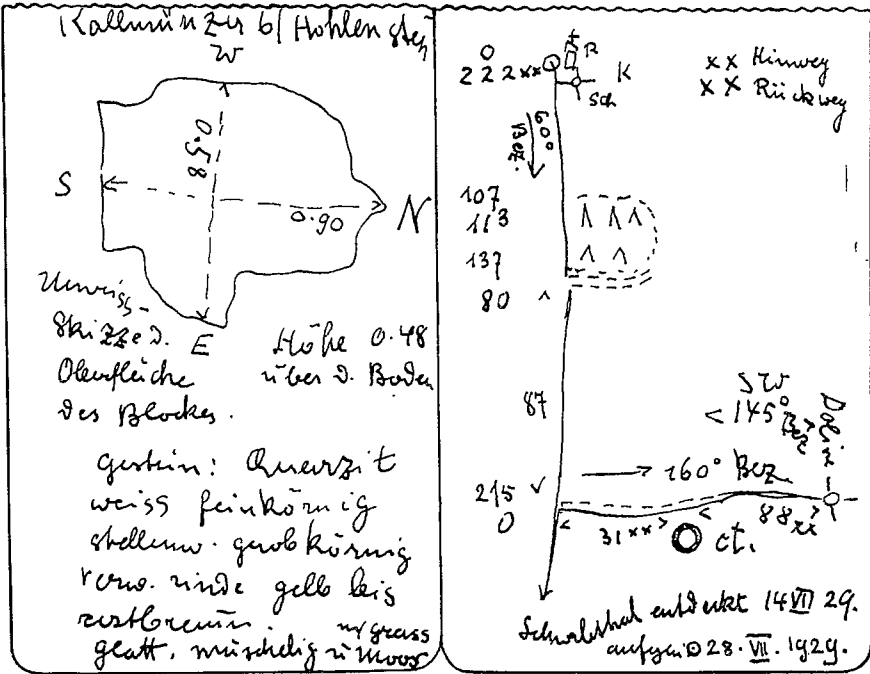 Kallmünzer b/ Hohlenstein
W
0.58
S
0.90
N
Umriss-
Skizze d. E
Oberfläche
des Blockes.
Höhe 0.48
über d. Boden
Gestein: Quarzit
weiss feinkörnig
stellenw. grobkörnig
verw. rinde gelb bis
rostbraun.
glatt, muschelig
m/grass
u Moos
0
222xx
R
K
Sch
xx Hinweg
xx Rückweg
60°
Bez.
107
113
137
80
87
215
0
SW
< 145°
Bez
160° Bez
31xx>
88xx
ct.
entdeckt 14 VII 29.
28. VII. 1929.